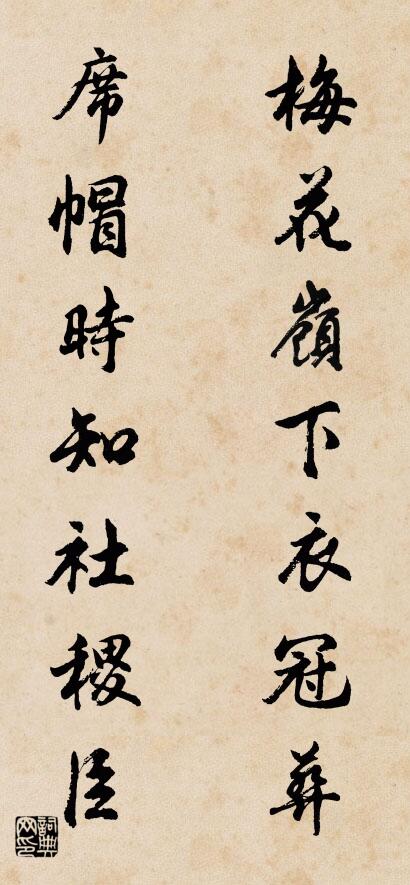 梅花嶺下衣冠葬
席帽時知社稷臣
詞典
网印